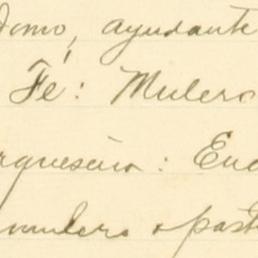 domo, ayudante
Fé: Mulero
queseiro: Enc
mulero o past